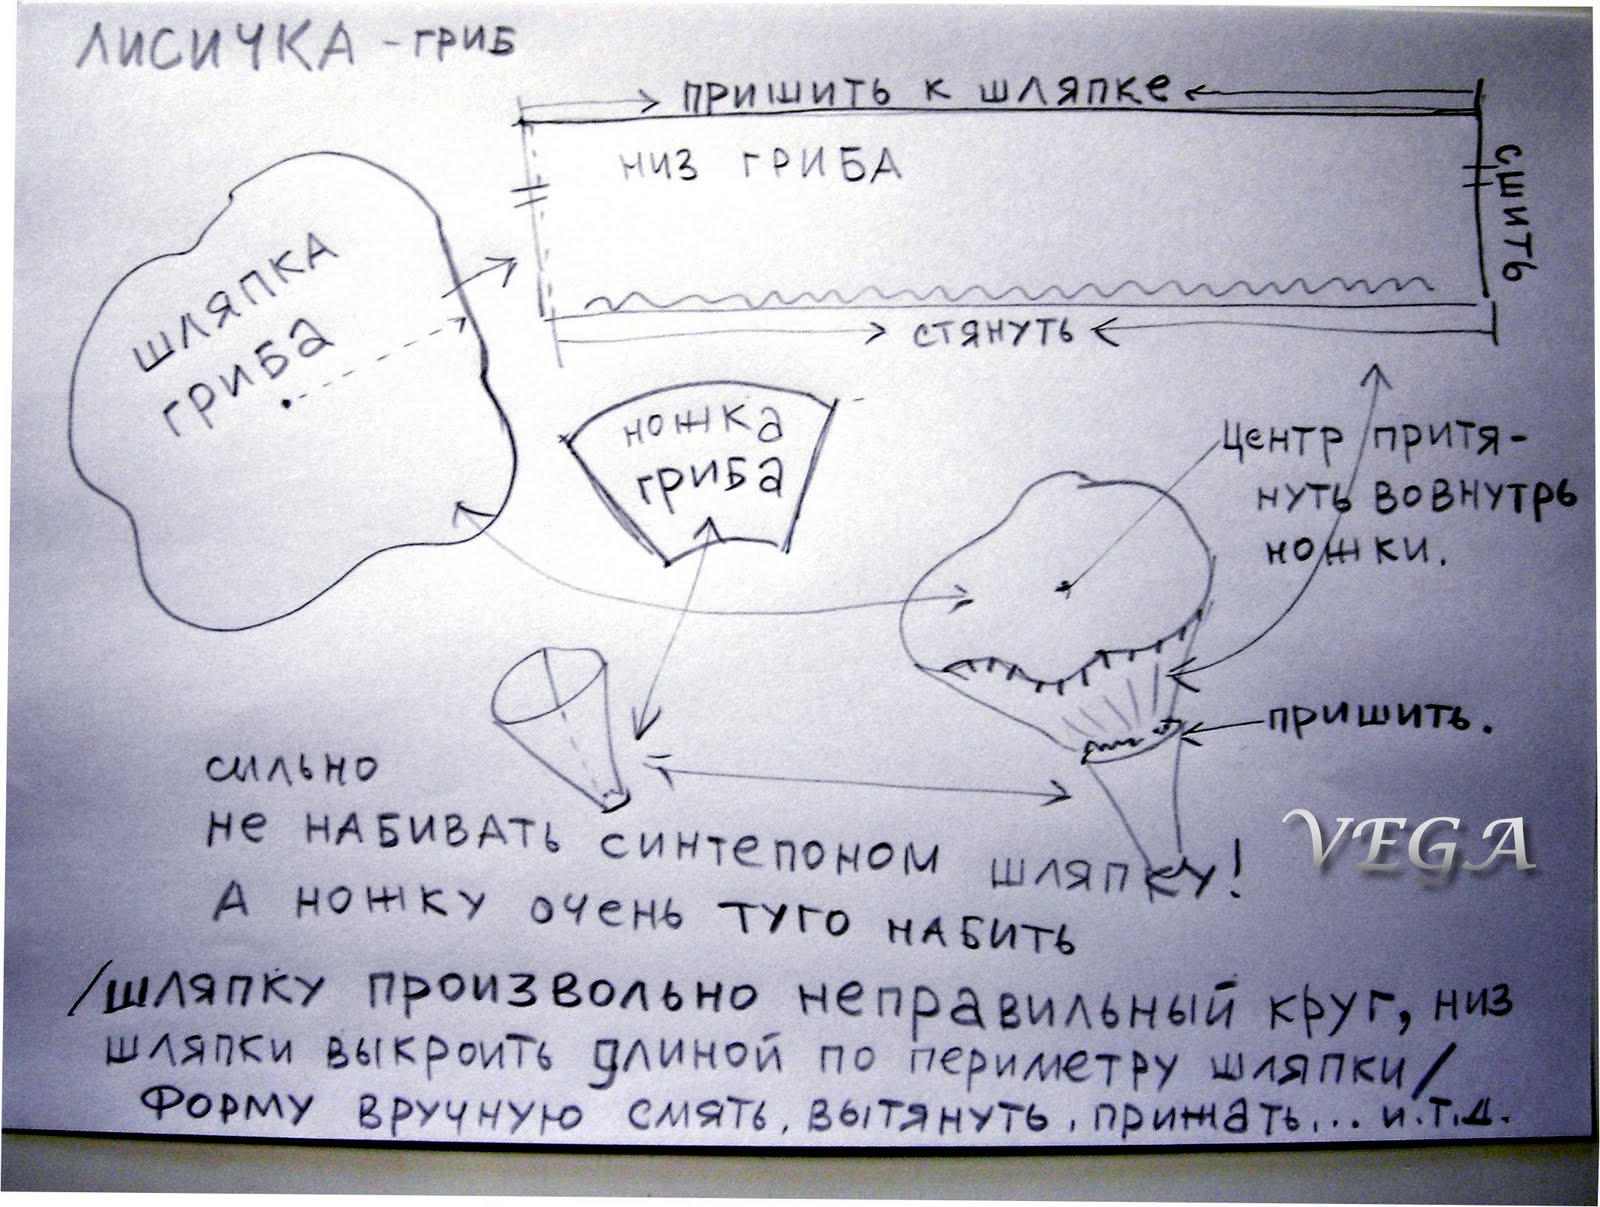 ЛИСИЧКА - ГРИБ
ПРИШИТЬ К ШЛЯПКЕ
НИЗ ГРИБА
СШИТЬ
ШЛЯПКА
ГРИБА
СТЯНУТЬ
НОЖКА
ГРИБА
ЦЕНТР ПРИТЯ-
НУТЬ ВОВНУТРЬ
НОЖКИ.
ПРИШИТЬ.
СИЛЬНО
НЕ НАБИВАТЬ СИНТЕПОНОМ ШЛЯПКУ!
А НОЖКУ ОЧЕНЬ ТУГО НАБИТЬ
VEGA
/ШЛЯПКУ ПРОИЗВОЛЬНО НЕПРАВИЛЬНЫЙ КРУГ, НИЗ
ШЛЯПКИ ВЫКРОИТЬ ДЛИНОЙ ПО ПЕРИМЕТРУ ШЛЯПКИ/
ФОРМУ ВРУЧНУЮ СМЯТЬ, ВЫТЯНУТЬ, ПРИЖАТЬ... И.Т.Д.